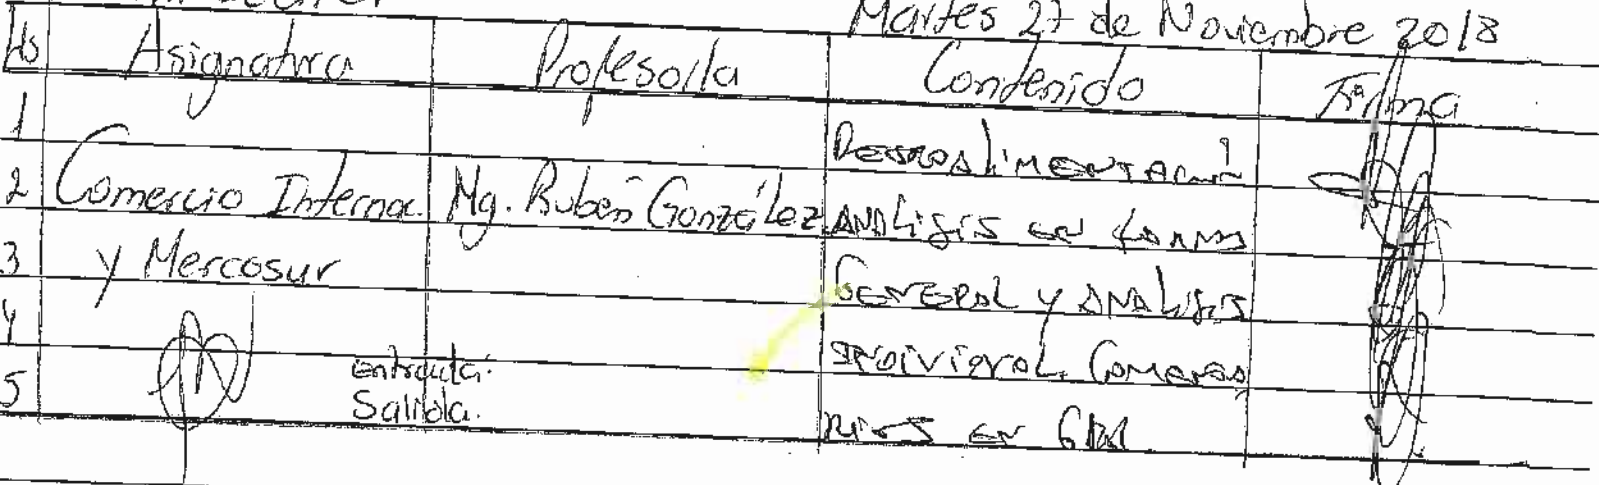 Martes 27 de Noviembre 2018
Hs Asignatura Profesor/a Contenido Firma
1 Retroalimentación
2 Comercio Internac. Mg. Rubén González Análisis en forma
3 y Mercosur General y Análisis
4 Individual. Comenta
5 Entrada: rios en Gral
Salida.